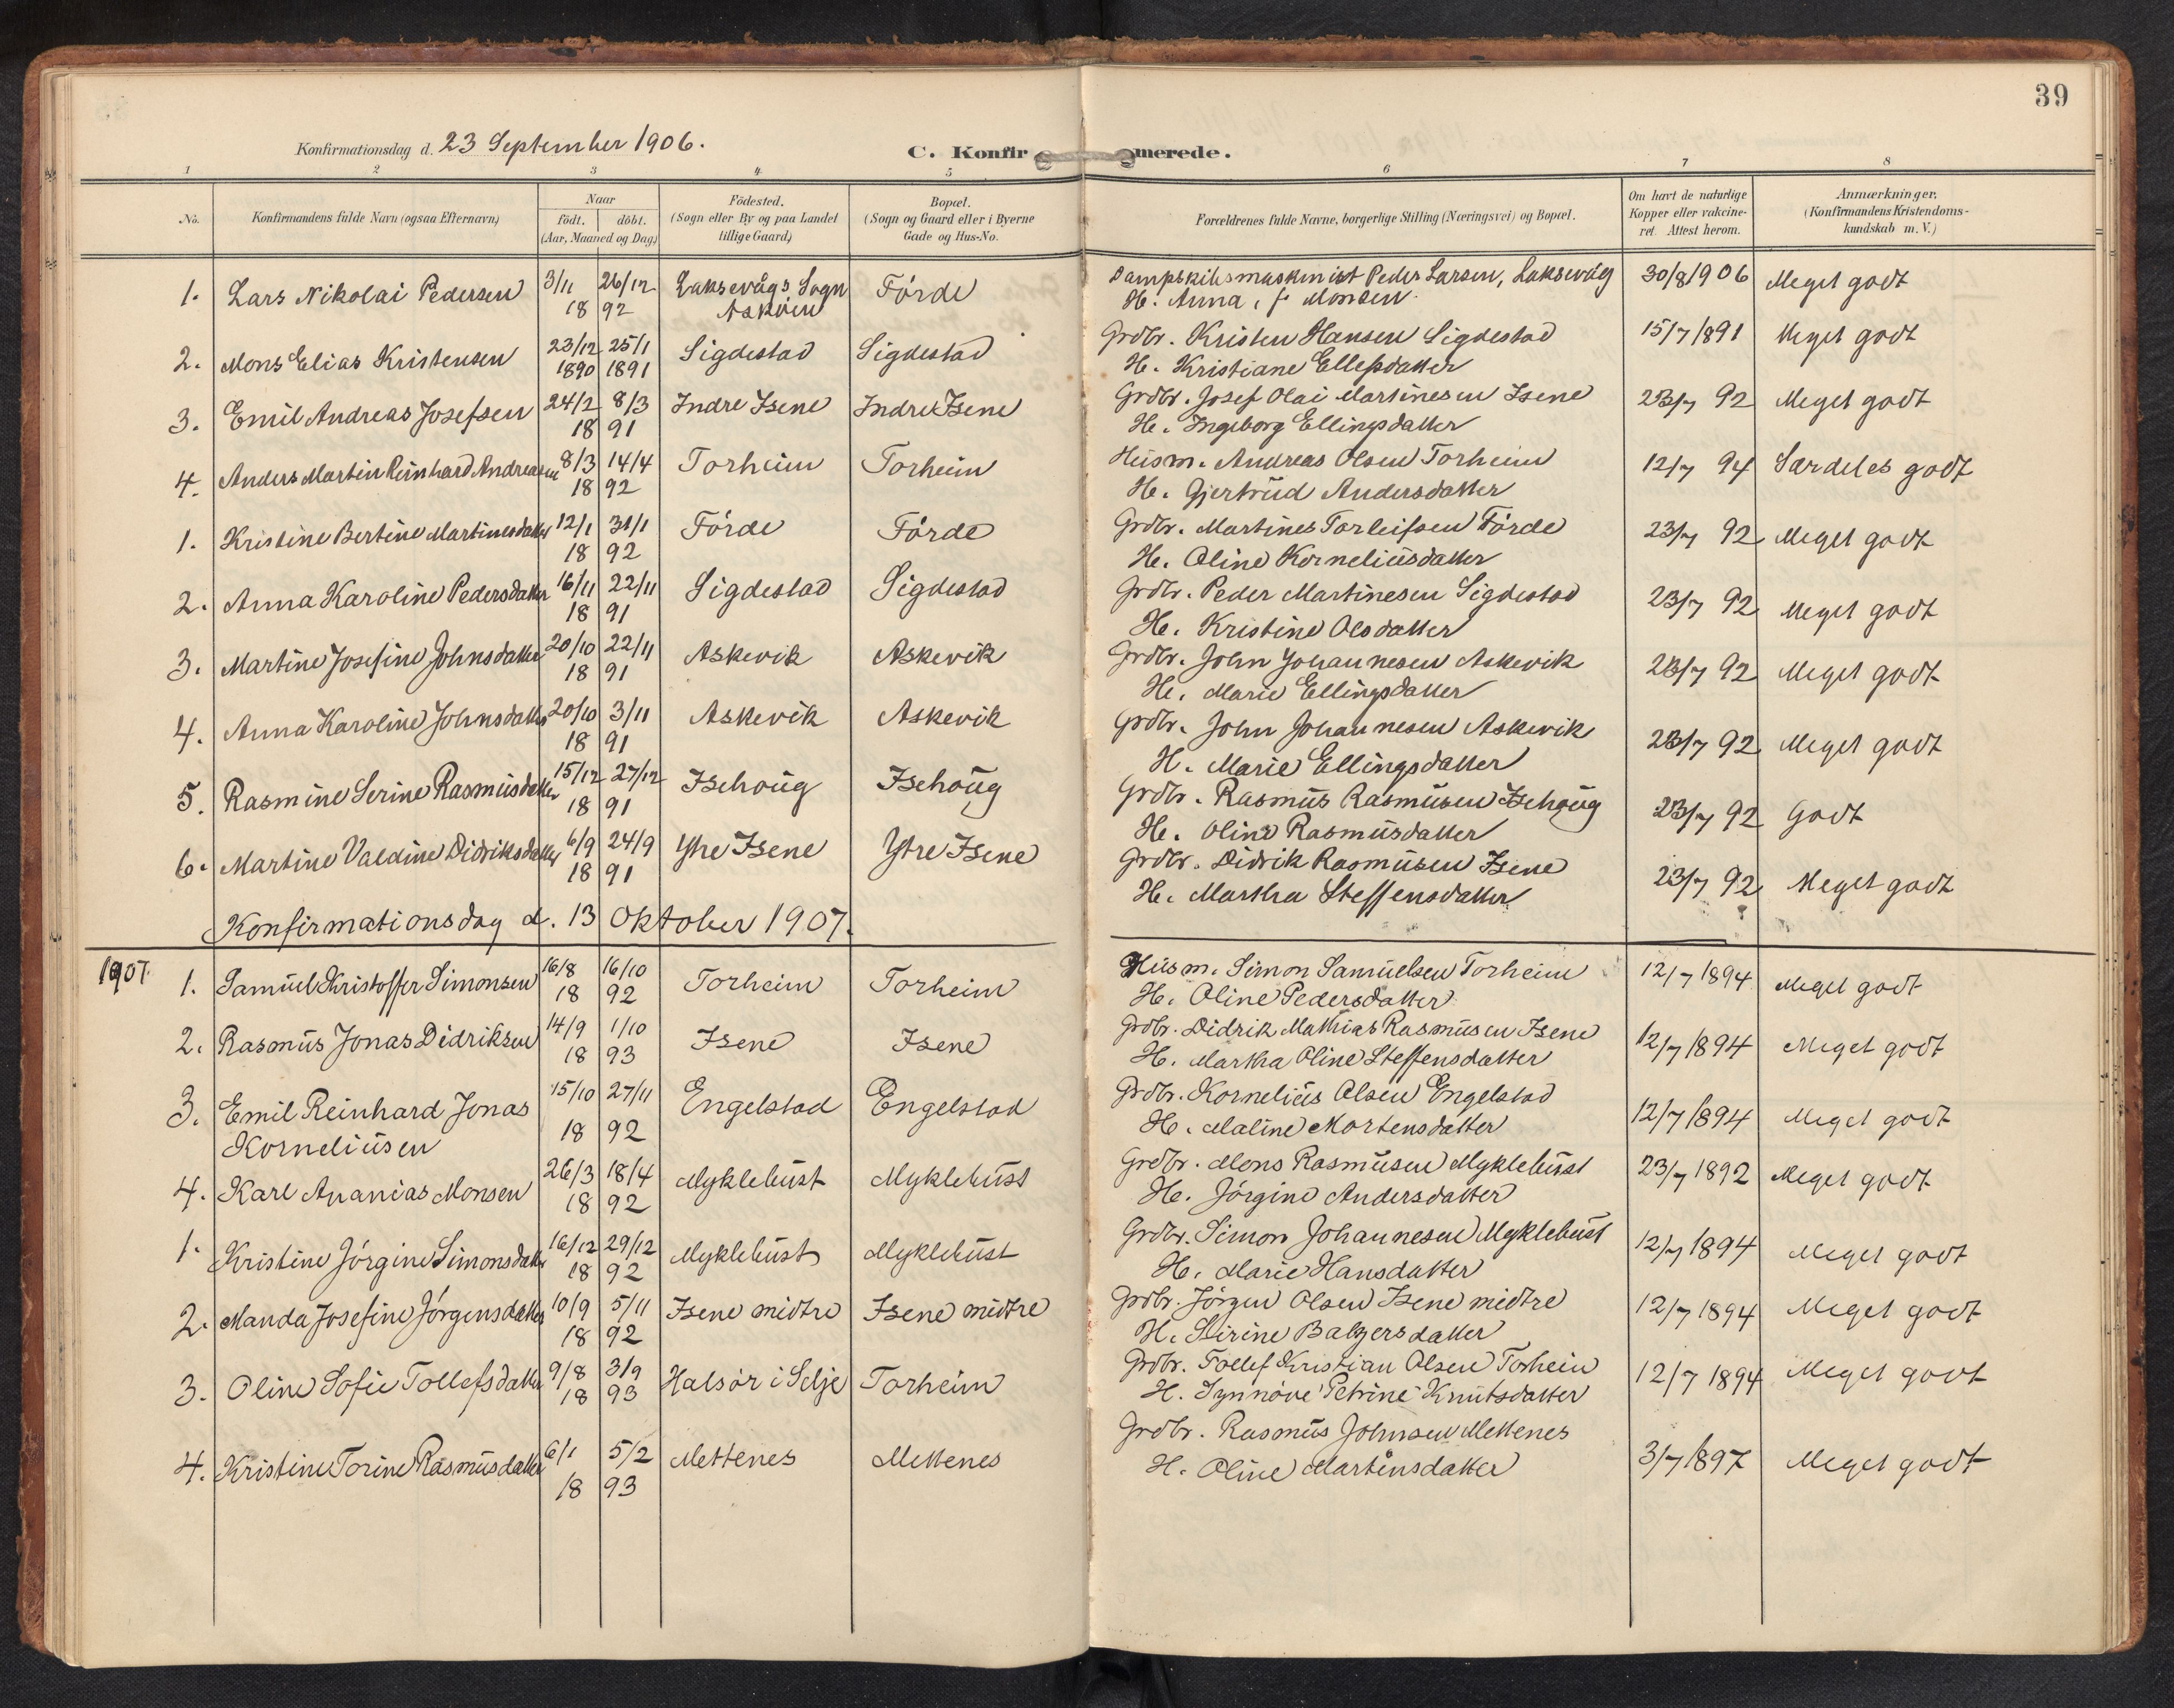 39
Konfirmationsdag d. 23 September 1906.
C. Konfirmerede.
1 2 3 4 5 6 7 8
No. Konfirmandens fulde Navn (ogsaa Efternavn) Naar födt. döbt. (Aar, Maaned og Dag) Födested. (Sogn eller By og paa Landet tillige Gaard) Bopæl. (Sogn og Gaard eller i Byerne Gade og Hus-No. Forældrenes fulde Navne, borgerlige Stilling (Næringsvei) og Bopæl. Om havt de naturlige Kopper eller vakcineret. Attest herom. Anmærkninger. (Konfirmandens Kristendomskundskab m. V.)
1. Lars Nikolai Pedersen 3/11 26/12 Laksevågs Sogn Förde Dampskibsmaskinist Peder Larsen, Laksevåg 30/8 1906 Meget godt
18 92 Asköen H. Anna, f. Monsen.
2. Mons Elias Kristensen 23/12 25/1 Sigdestad Sigdestad Grdbr. Kristen Hansen Sigdestad 15/7 1891 Meget godt
1890 1891 H. Kristiane Ellefsdatter
3. Emil Andreas Josefsen 24/2 8/3 Indre Isene Indre Isene Grdbr. Josef Olai Martinesen Isene 23/7 92 Meget godt
18 91 H. Ingeborg Ellingsdatter
4. Anders Martin Reinhard Andreasen 8/3 14/4 Torheim Torheim Husm. Andreas Olsen Torheim 12/7 94 Særdeles godt
18 92 H. Gjertrud Andersdatter
1. Kristine Bertine Martinesdatter 12/1 31/1 Förde Förde Grdbr. Martines Torleifsen Förde 23/7 92 Meget godt
18 92 H. Oline Korneliusdatter
2. Anna Karoline Pedersdatter 16/11 22/11 Sigdestad Sigdestad Grdbr. Peder Martinesen Sigdestad 23/7 92 Meget godt
18 91 H. Kristine Olsdatter
3. Martine Josefine Johnsdatter 20/10 22/11 Askevik Askevik Grdbr. John Johannesen Askevik 23/7 92 Meget godt
18 91 H. Marie Ellingsdatter
4. Anna Karoline Johnsdatter 20/10 3/11 Askevik Askevik Grdbr. John Johannesen Askevik 23/7 92 Meget godt
18 91 H. Marie Ellingsdatter
5. Rasmine Serine Rasmusdatter 15/12 27/12 Isehoug Isehoug Grdbr. Rasmus Rasmusen Isehoug 23/7 92 Godt
18 91 H. Oline Rasmusdatter
6. Martine Valdine Didriksdatter 6/9 24/9 Ytre Isene Ytre Isene Grdbr. Didrik Rasmusen Isene 23/7 92 Meget godt
18 91 H. Martha Steffensdatter
Konfirmationsdag d. 13 Oktober 1907.
1907. 1. Samuel Kristoffer Simonsen 16/8 16/10 Torheim Torheim Husm. Simon Samuelsen Torheim 12/7 1894 Meget godt
18 92 H. Oline Pedersdatter
2. Rasmus Jonas Didriksen 14/9 1/10 Isene Isene Grdbr. Didrik Mathias Rasmusen Isene 12/7 1894 Meget godt
18 93 H. Martha Oline Steffensdatter
3. Emil Reinhard Jonas 15/10 27/11 Engelstad Engelstad Grdbr. Kornelius Olsen Engelstad 12/7 1894 Meget godt
Korneliusen 18 92 H. Maline Mortensdatter
4. Karl Ananias Monsen 26/3 18/4 Myklebust Myklebust Grdbr. Mons Rasmusen Myklebust 23/7 1892 Meget godt
18 92 H. Jörgine Andersdatter
1. Kristine Jörgine Simonsdatter 16/12 29/12 Myklebust Myklebust Grdbr. Simon Johannesen Myklebust 12/7 1894 Meget godt
18 92 H. Marie Hansdatter
2. Manda Josefine Jörgensdatter 10/9 5/11 Isene midtre Isene midtre Grdbr. Jörgen Olsen Isene midtre 12/7 1894 Meget godt
18 92 H. Sirine Balzersdatter
3. Oline Sofie Tollefsdatter 9/8 3/9 Halsör i Selje Torheim Grdbr. Tollef Kristian Olsen Torheim 12/7 1894 Meget godt
18 93 H. Synnöve Petrine Knutsdatter
4. Kristine Torine Rasmusdatter 6/1 5/2 Mettenes Mettenes Grdbr. Rasmus Johnsen Mettenes 3/7 1897 Meget godt
18 93 H. Oline Martinsdatter